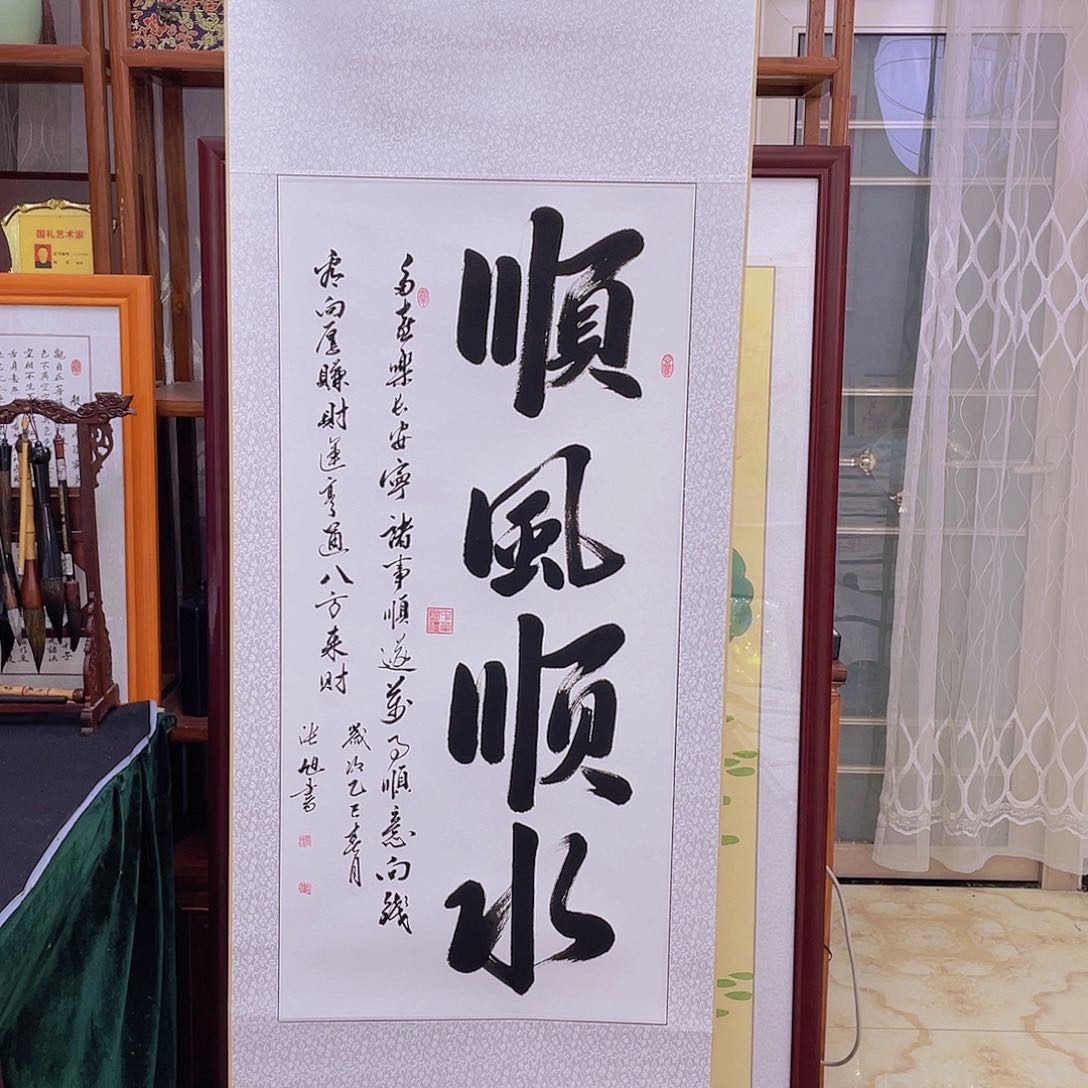 順風顺水
多喜樂长安寧諸事順遂萬事順意向錢
看向厚賺財運亨通八方来財
歲次乙巳春月
张旭書
国礼艺术家